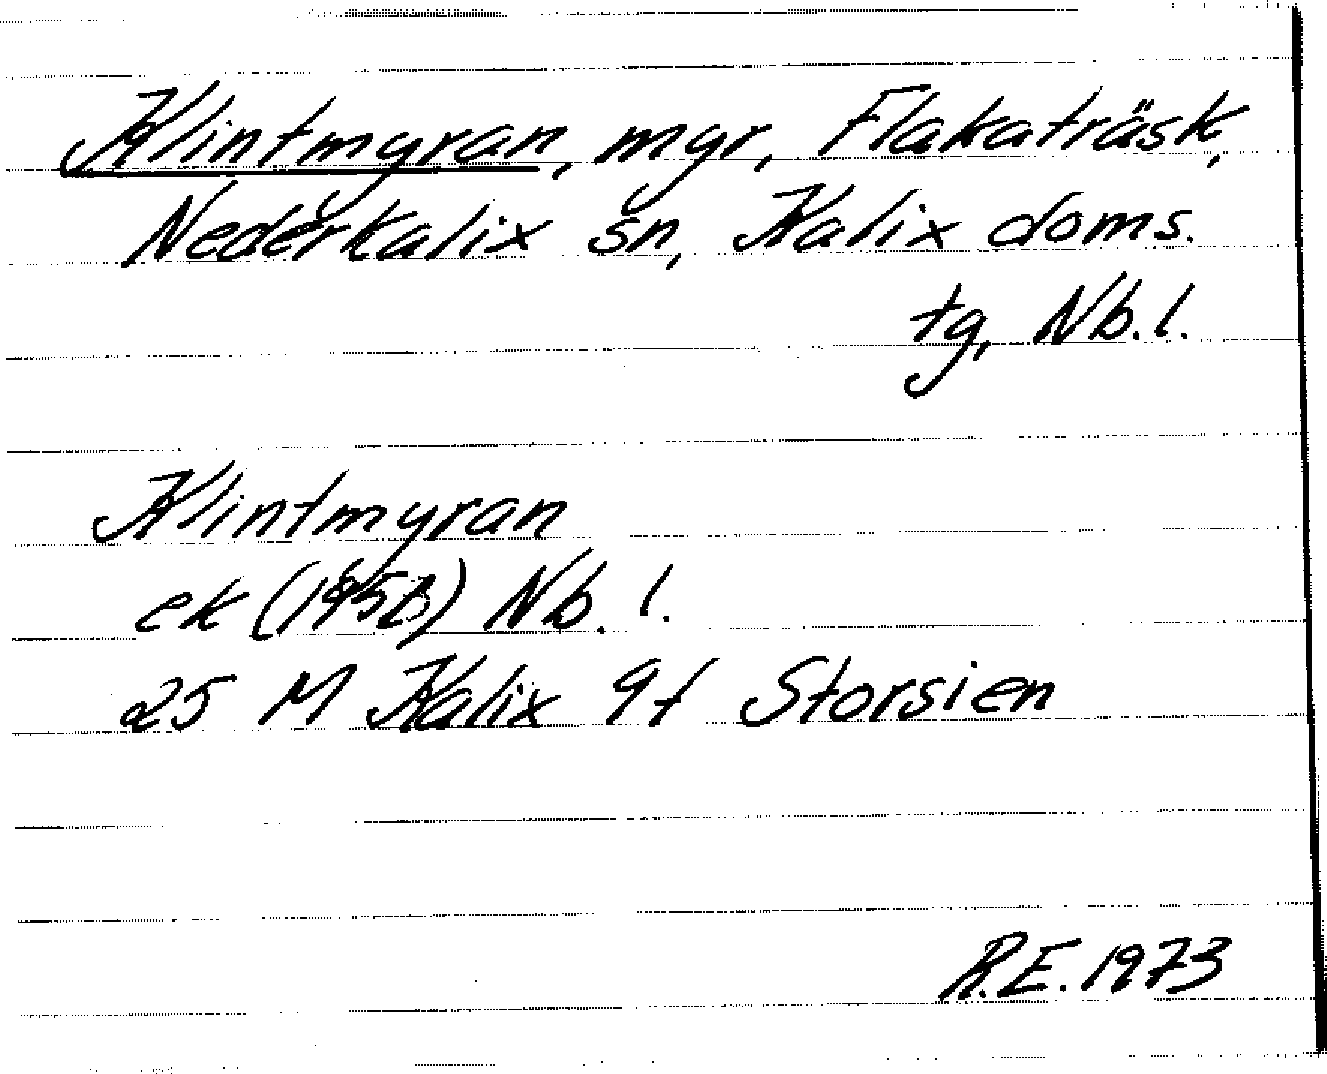 Klintmyran, myr, Flakaträsk,
Nederkalix sn, Kalix doms.
tg, Nb.l.
Klintmyran
ek (1958) Nb. l.
25 M Kalix 9f Storsien
R.E. 1973